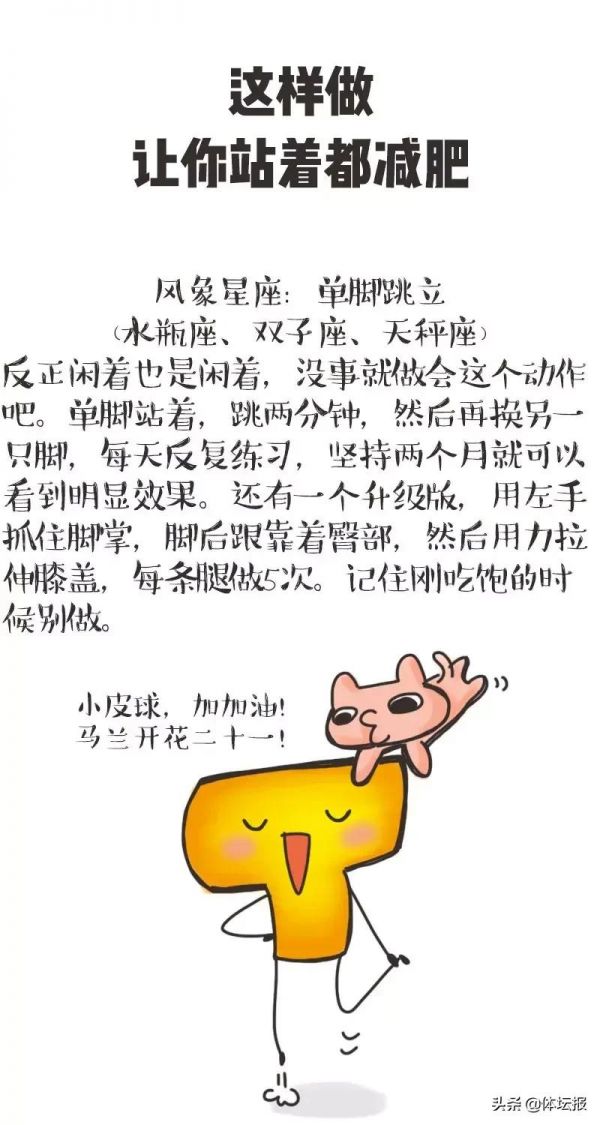 这样做
让你站着都减肥
风象星座：单脚跳立
（水瓶座、双子座、天秤座）
反正闲着也是闲着，没事就做会这个动作
吧。单脚站着，跳两分钟，然后再换另一
只脚，每天反复练习，坚持两个月就可以
看到明显效果。还有一个升级版，用左手
抓住脚掌，脚后跟靠着臀部，然后用力拉
伸膝盖，每条腿做5次。记住刚吃饱的时
候别做。
小皮球，加加油！
马兰开花二十一！
头条@体坛报